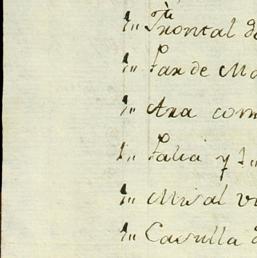 1,, Frontal de
1,, Par de Ma
1,, Ara con
1,, Palia y 1,,
1,, Misal vi
1,, Casulla d